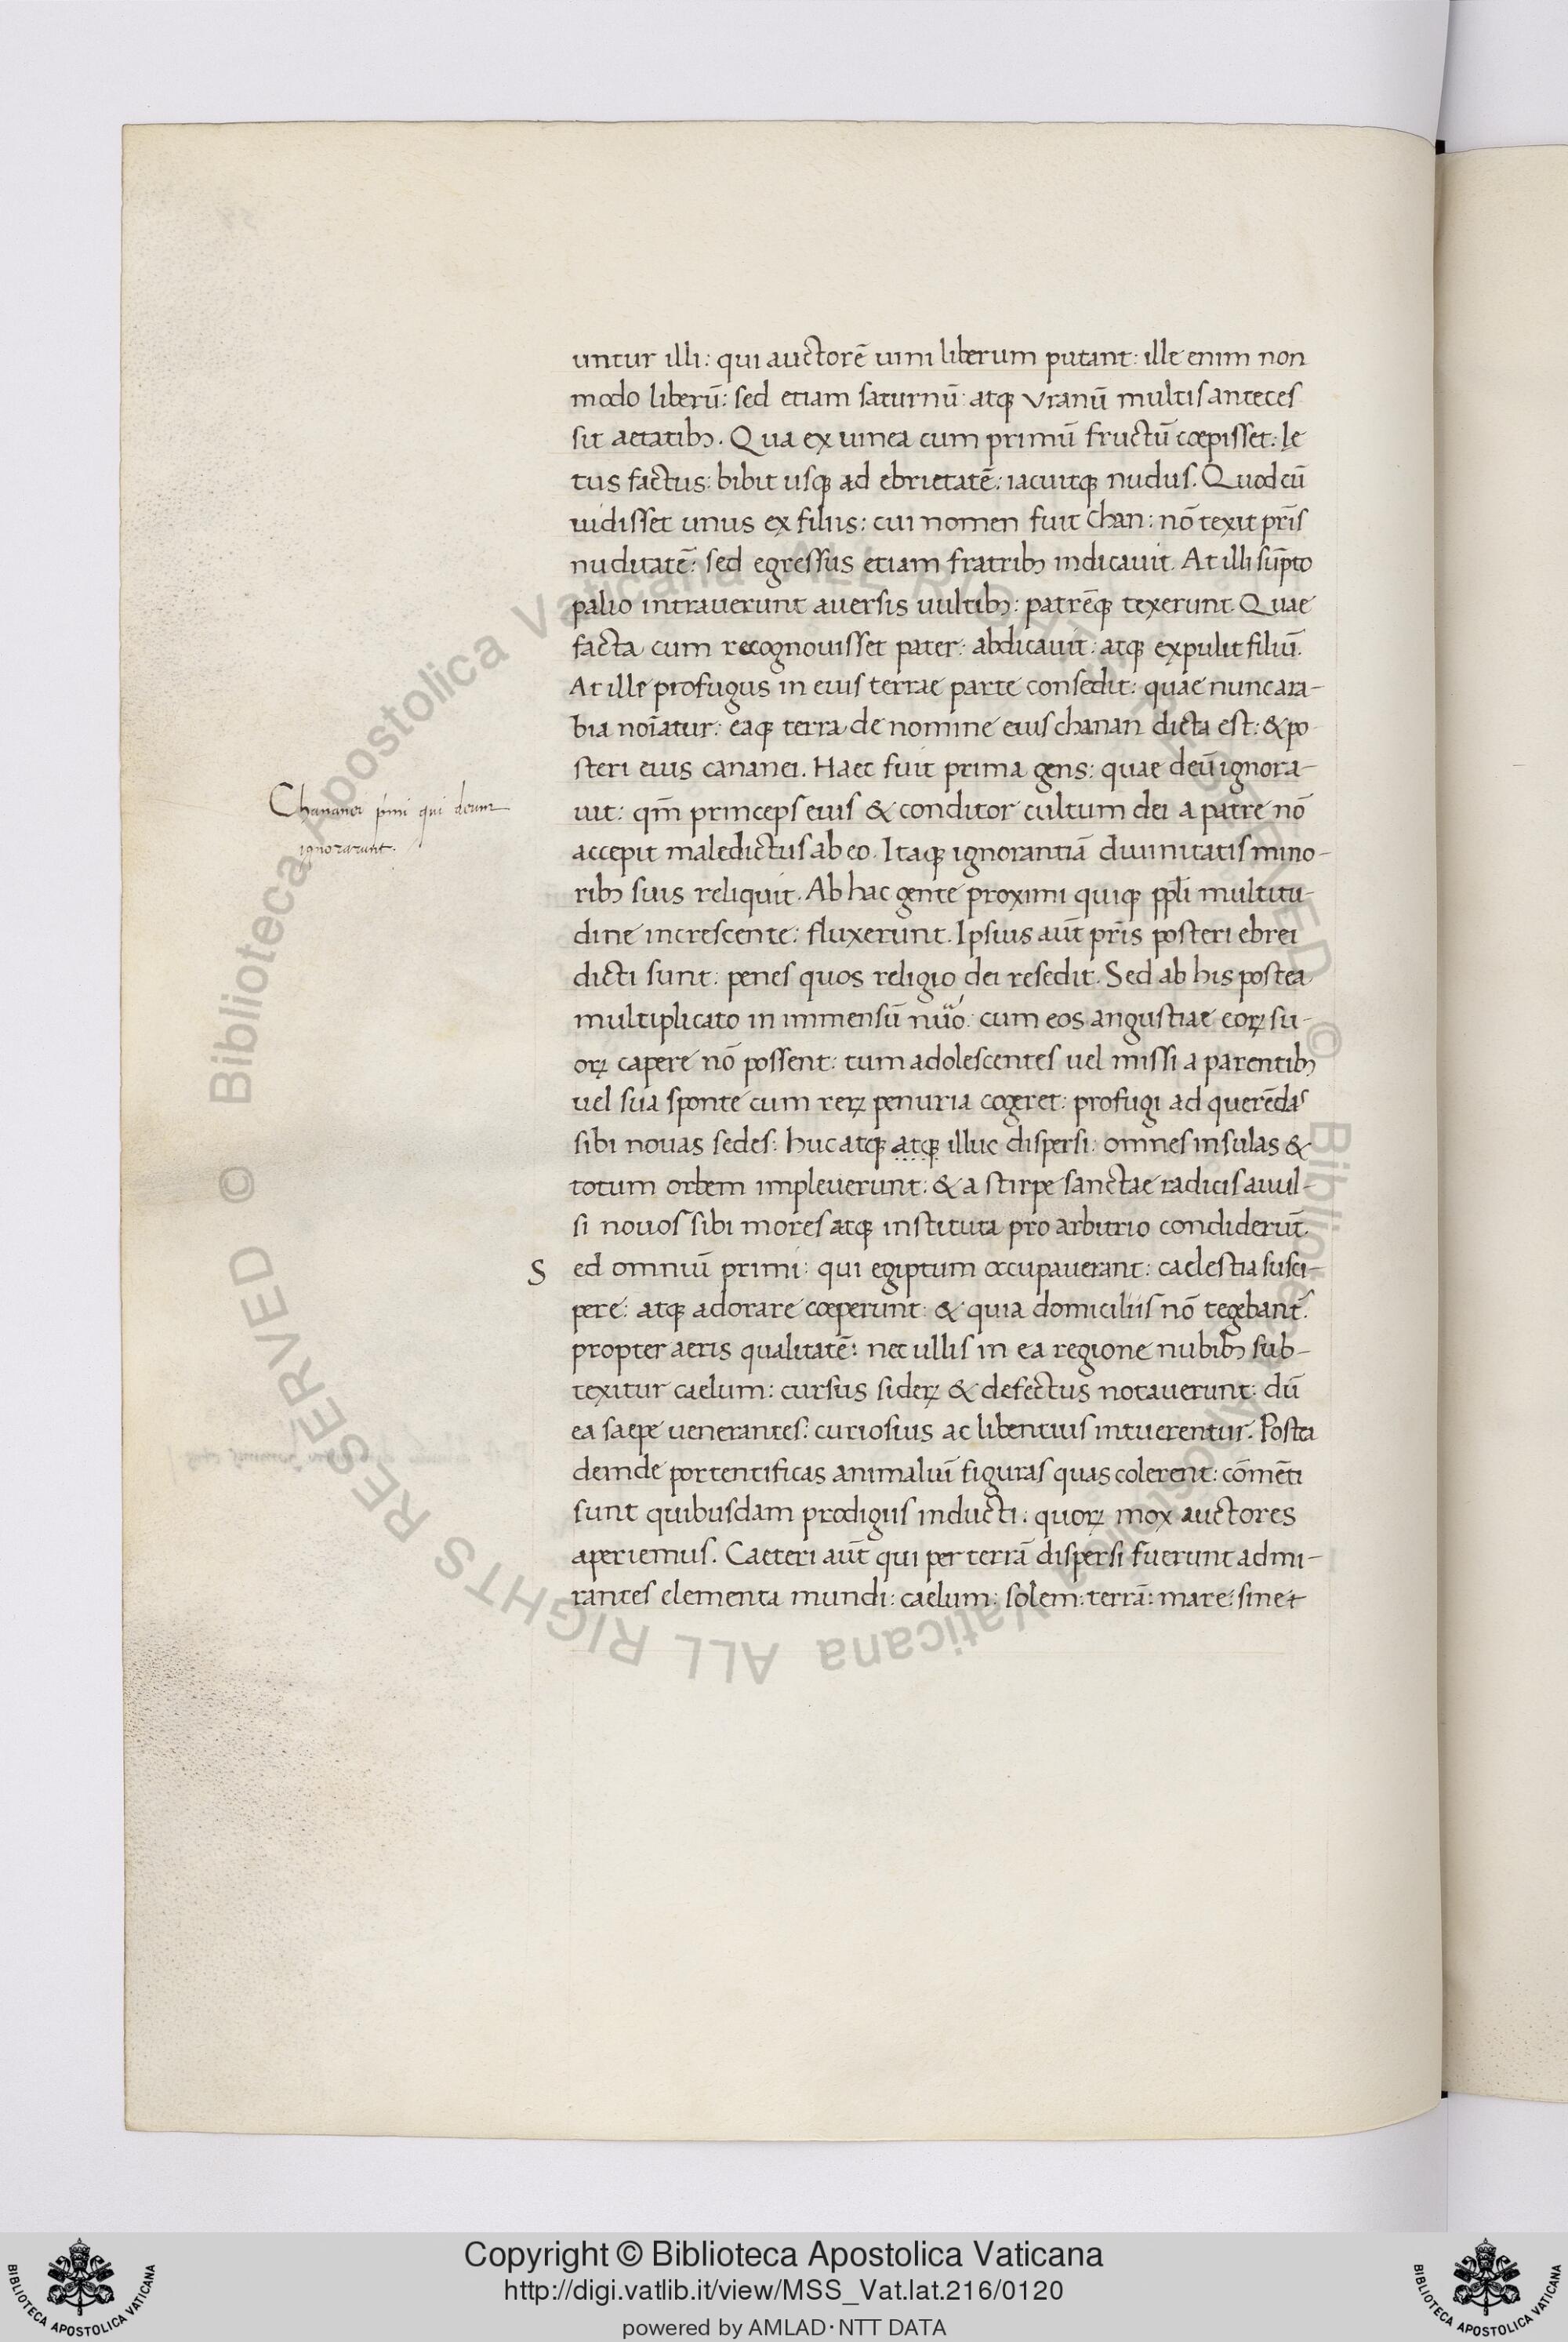 untur illi: qui auctorē uini liberum putant: ille enim non
modo liberū: sed etiam saturnū: atq; Vranū multis anteces
sit aetatib;. Qua ex uinea cum primū fructū cœpisset: lę
tus factus: bibit usq; ad ebrietatē: iacuitq; nudus. Quod cū
uidisset unus ex filiis: cui nomen fuit Chan: nō texit pr̄is
nuditatē: sed egressus etiam fratrib; indicauit. At illi sūpto
palio intrauerunt auersis uultib;: patrēq; texerunt. Quae
facta cum recognouisset pater: abdicauit: atq; expulit filiū.
At ille profugus in eius terrae parte consedit: quae nunc ara-
bia noīatur: eaq; terra de nomine eius chanan dicta est: & po
steri eius cananei. Haec fuit prima gens: quae deū ignora-
uit: qm̄ princeps eius & conditor cultum dei a patre nō
accepit maledictus ab eo. Itaq; ignorantiā diuinitatis mino-
rib; suis reliquit. Ab hac gente proximi quiq; ppl̄i multitu-
dine increscente: fluxerunt. Ipsius aūt pr̄is posteri ebrei
dicti sunt: penes quos religio dei resedit. Sed ab his postea
multiplicato in immensū nūo: cum eos angustiae eorꝝ su-
orꝝ capere nō possent: tum adolescentes uel missi a parentib;
uel sua sponte cum rerꝝ penuria cogeret: profugi ad querēdas
sibi nouas sedes: huc atq; atq; illuc dispersi: omnes insulas &
totum orbem impleuerunt: & a stirpe sanctae radicis auul-
si nouos sibi mores atq; instituta pro arbitrio condiderūt.
S ed omniū primi: qui egiptum occupauerant: caelestia susci-
pere: atq; adorare cœperunt: & quia domiciliis nō tegebant̄
propter aeris qualitatē: nec ullis in ea regione nubib; sub-
texitur caelum: cursus siderꝝ & defectus notauerunt: dū
ea saepe uenerantes: curiosius ac libentius intuerentur. Postea
deinde portentificas animaliū figuras quas colerent: cōmēti
sunt quibusdam prodigiis inducti: quorꝝ mox auctores
aperiemus. Caeteri aūt qui per terrā dispersi fuerunt admi-
rantes elementa mundi: caelum: solem: terrā: mare: sine
Chananei p̄mi qui deum
ignorarunt.
© Biblioteca Apostolica Vaticana ALL RIGHTS RESERVED © Biblioteca Apostolica Vaticana ALL RIGHTS RESERVED
Copyright © Biblioteca Apostolica Vaticana
http://digi.vatlib.it/view/MSS_Vat.lat.216/0120
powered by AMLAD·NTT DATA
BIBLIOTECA APOSTOLICA VATICANA
BIBLIOTECA APOSTOLICA VATICANA